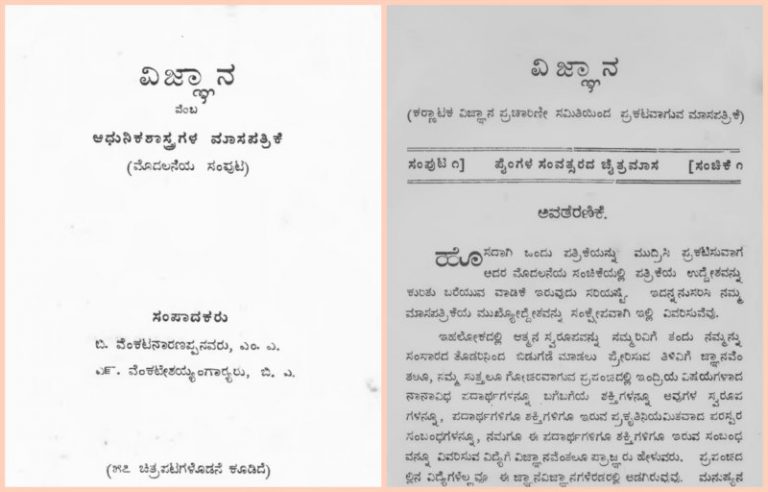 ವಿಜ್ಞಾನ
ವೆಂಬ
ಆಧುನಿಕಶಾಸ್ತ್ರಗಳ ಮಾಸಪತ್ರಿಕೆ
(ಮೊದಲನೆಯ ಸಂಪುಟ)
ಸಂಪಾದಕರು
ಬಿ. ವೆಂಕಟನಾರಣಪ್ಪನವರು, ಎಂ. ಎ.
ಎನ್. ವೆಂಕಟೇಶಯ್ಯಂಗಾರ‍್ಯರು, ಬಿ. ಎ.
(೫೭ ಚಿತ್ರಪಟಗಳೊಡನೆ ಕೂಡಿದೆ)
ವಿಜ್ಞಾನ
(ಕರ್ಣಾಟಕ ವಿಜ್ಞಾನ ಪ್ರಚಾರಿಣೀ ಸಮಿತಿಯಿಂದ ಪ್ರಕಟವಾಗುವ ಮಾಸಪತ್ರಿಕೆ)
ಸಂಪುಟ ೧] ಪೈಂಗಳ ಸಂವತ್ಸರದ ಚೈತ್ರಮಾಸ [ಸಂಚಿಕೆ ೧
ಅವತರಣಿಕೆ.
ಹೊಸದಾಗಿ ಒಂದು ಪತ್ರಿಕೆಯನ್ನು ಮುದ್ರಿಸಿ ಪ್ರಕಟಿಸುವಾಗ
ಅದರ ಮೊದಲನೆಯ ಸಂಚಿಕೆಯಲ್ಲಿ ಪತ್ರಿಕೆಯ ಉದ್ದೇಶವನ್ನು
ಕುರಿತು ಬರೆಯುವ ವಾಡಿಕೆ ಇರುವುದು ಸರಿಯಷ್ಟೆ. ಇದನ್ನನುಸರಿಸಿ ನಮ್ಮ
ಮಾಸಪತ್ರಿಕೆಯ ಮುಖ್ಯೋದ್ದೇಶವನ್ನು ಸಂಕ್ಷೇಪವಾಗಿ ಇಲ್ಲಿ ವಿವರಿಸುವೆವು.
ಇಹಲೋಕದಲ್ಲಿ ಆತ್ಮನ ಸ್ವರೂಪವನ್ನು ನಮ್ಮರಿವಿಗೆ ತಂದು ನಮ್ಮನ್ನು
ಸಂಸಾರದ ತೊಡರಿನಿಂದ ಬಿಡುಗಡೆ ಮಾಡಲು ಪ್ರೇರಿಸುವ ತಿಳಿವಿಗೆ ಜ್ಞಾನವೆಂ
ತಲೂ, ನಮ್ಮ ಸುತ್ತಲೂ ಗೋಚರವಾಗುವ ಪ್ರಪಂಚದಲ್ಲಿ ಇಂದ್ರಿಯ ವಿಷಯಗಳಾದ
ನಾನಾವಿಧ ಪದಾರ್ಥಗಳನ್ನೂ ಬಗೆಬಗೆಯ ಶಕ್ತಿಗಳನ್ನೂ ಅವುಗಳ ಸ್ವರೂಪ
ಗಳನ್ನೂ, ಪದಾರ್ಥಗಳಿಗೂ ಶಕ್ತಿಗಳಿಗೂ ಇರುವ ಪ್ರಕೃತಿನಿಯಮಿತವಾದ ಪರಸ್ಪರ
ಸಂಬಂಧಗಳನ್ನೂ, ನಮಗೂ ಈ ಪದಾರ್ಥಗಳಿಗೂ ಶಕ್ತಿಗಳಿಗೂ ಇರುವ ಸಂಬಂಧ
ವನ್ನೂ ವಿವರಿಸುವ ವಿದ್ಯೆಗೆ ವಿಜ್ಞಾನವೆಂತಲೂ ಪ್ರಾಜ್ಞರು ಹೇಳುವರು. ಪ್ರಪಂಚದ
ಲ್ಲಿನ ವಿದ್ಯೆಗಳೆಲ್ಲವೂ ಈ ಜ್ಞಾನವಿಜ್ಞಾನಗಳೆರಡರಲ್ಲಿ ಅಡಗಿರುವುವು. ಮನುಷ್ಯನ